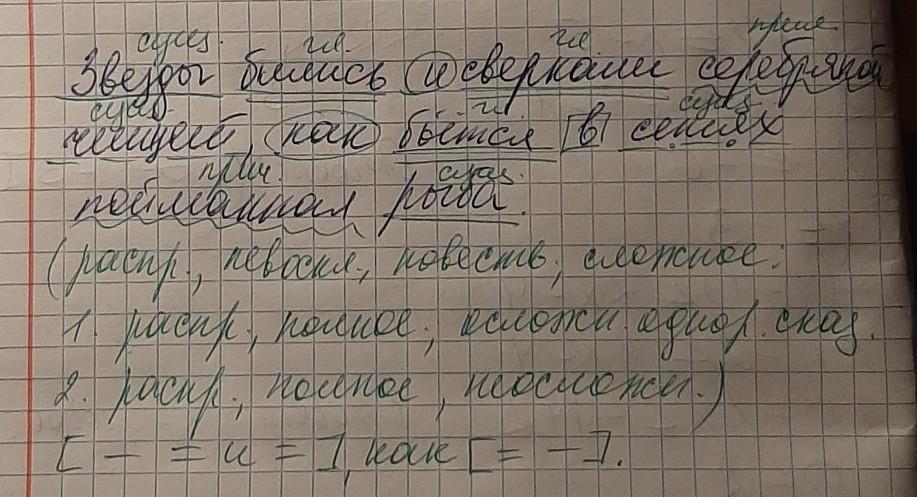 сущ. гл. гл прил.
Звезды бились и сверкали серебряной
сущ. гл сущ.
чешуей, как бьётся в сетях
прич. сущ.
пойманная рыба.
(распр., невоскл., повеств., сложное:
1. распр., полное, осложн. однор. сказ.
2. распр., полное, неосложн.)
[ — = и = ], как [ = — ].